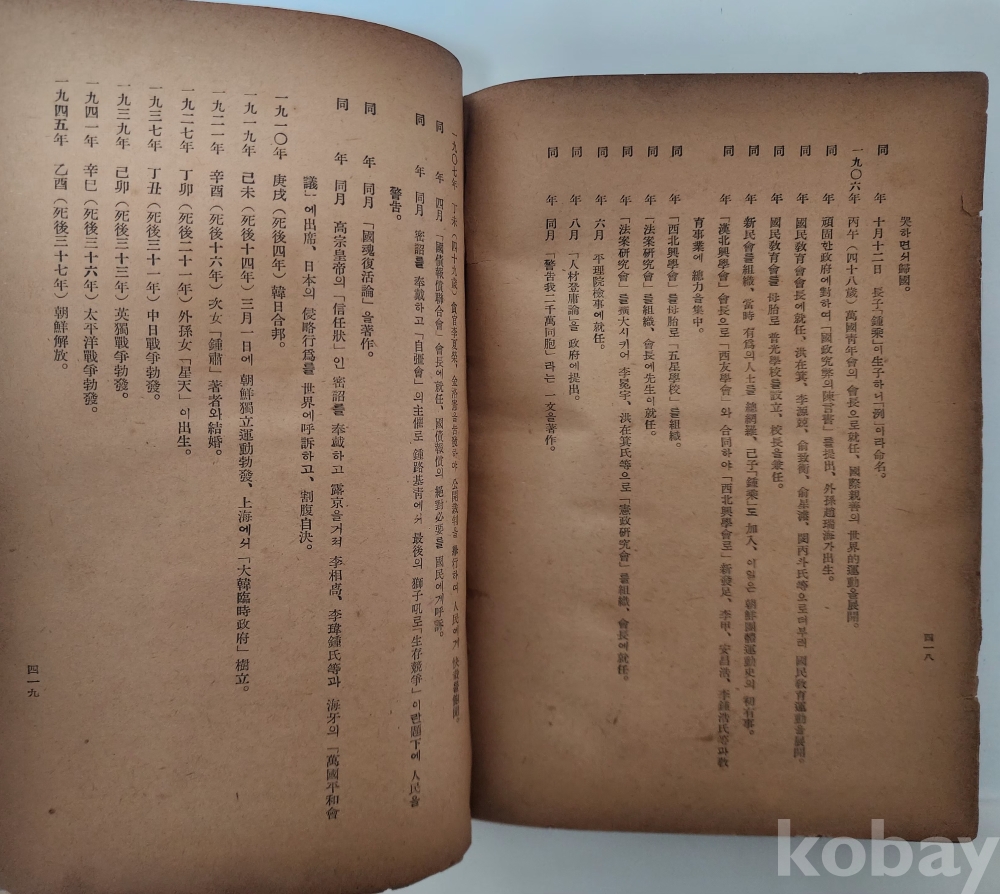 哭하면서歸國。
同 年 十月十二日 長子「鍾乘」이生子하니「洌」이라命名。
一九〇六年 丙午(四十八歲)萬國靑年會의 會長으로就任、國際親善의 世界的運動을展開。
同 年 頑固한政府에對하여「國政究弊의陳言書」를提出、外孫趙瑞海가出生。
同 年 國民敎育會會長에就任、洪在箕、李源兢、兪致衡、兪星濬、閔丙斗氏等으로더부러 國民敎育運動을展開。
同 年 國民敎育會를 母胎로 普光學校를設立、校長을兼任。
同 年 新民會를組織、當時 有爲의人士를 總網羅、己子「鍾乘」도 加入、이일은 朝鮮團體運動史의 初有事。
同 年 「漢北興學會」會長으로「西友學會」와 合同하야「西北興學會로」新發足、李甲、安昌浩、李鍾浩氏等과敎
育事業에 總力을集中。
同 年 「西北興學會」를母胎로「五星學校」를組織。
同 年 「法案硏究會」를組織、會長에先生이就任。
同 年 「法案硏究會」를擴大시키어 李冕宇、洪在箕氏等으로「憲政硏究會」를組織、會長에就任。
同 年 六月 平理院檢事에就任。
同 年 八月「人材登庸論」을政府에提出。
同 年 同月「警告我二千萬同胞」라는 一文을著作。
四一八
一九〇七年 丁未(四十九歲)
同 年 四月「國債報償聯合會」會長에就任、國債報償의 絕對必要를 國民에게呼訴。
同 年 同月 密詔를 奉戴하고「自彊會」의主催로 鍾路基靑에서 最後의 獅子吼로「生存競爭」이란題下에 人民을
警告。
同 年 同月「國魂復活論」을著作。
同 年 同月 高宗皇帝의「信任狀」인 密詔를 奉戴하고 露京을거처 李相卨、李瑋鍾氏等과 海牙의「萬國平和會
議」에出席、日本의 侵略行爲를 世界에呼訴하고、割腹自決。
一九一〇年 庚戌(死後四年)韓日合邦。
一九一九年 己未(死後十四年)三月一日에 朝鮮獨立運動勃發、上海에서「大韓臨時政府」樹立。
一九二一年 辛酉(死後十六年)次女「鍾肅」著者와結婚。
一九二七年 丁卯(死後二十一年)外孫女「星天」이出生。
一九三七年 丁丑(死後三十一年)中日戰爭勃發。
一九三九年 己卯(死後三十三年)英獨戰爭勃發。
一九四一年 辛巳(死後三十六年)太平洋戰爭勃發。
一九四五年 乙酉(死後三十七年)朝鮮解放。
四一九
kobay